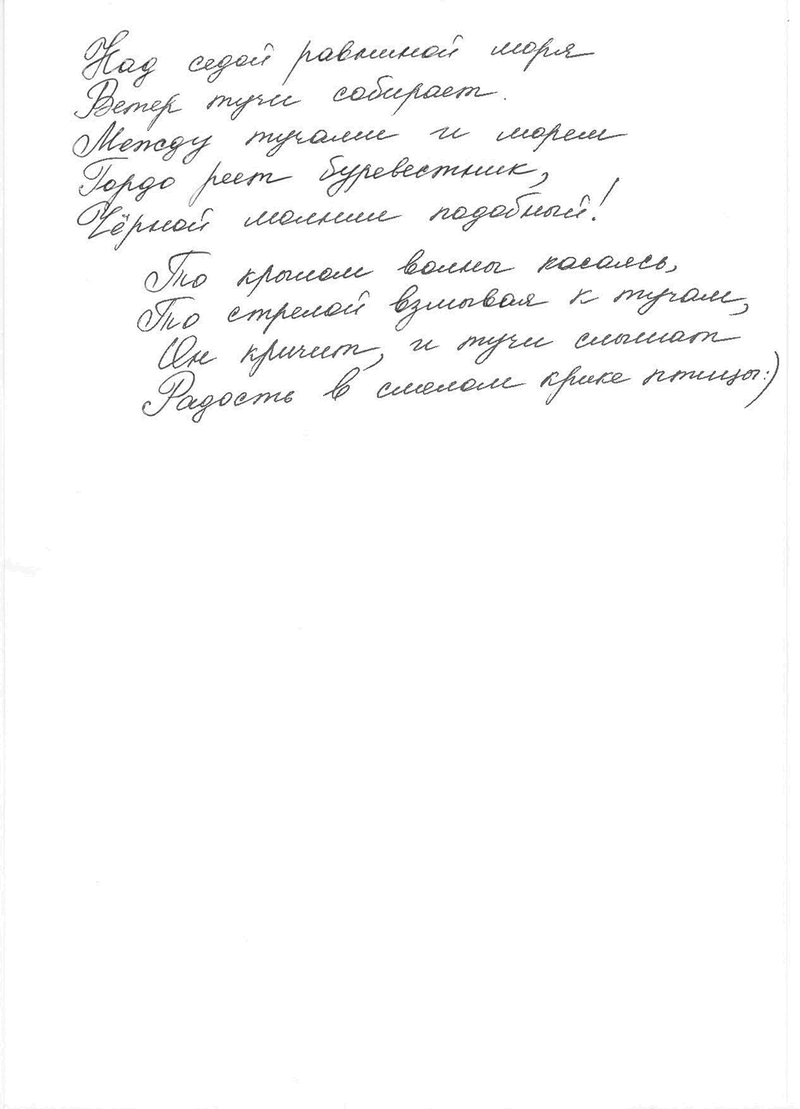 Над седой равниной моря
Ветер тучи собирает.
Между тучами и морем
Гордо реет буревестник,
Чёрной молнии подобный!
То крылом волны касаясь,
То стрелой взмывая к тучам,
Он кричит, и тучи слышат
Радость в смелом крике птицы:)